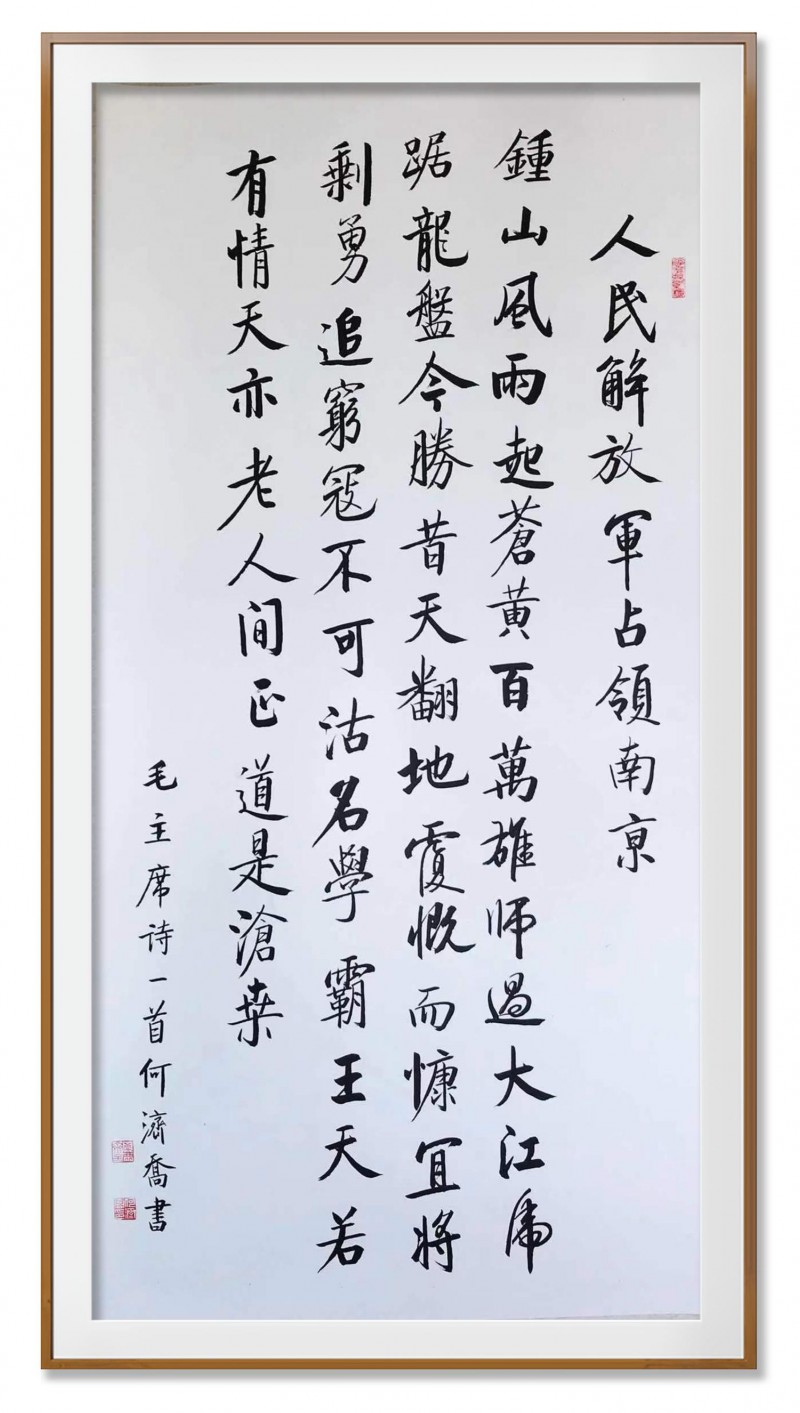 人民解放軍占領南京
鍾山風雨起蒼黃百萬雄师過大江虎
踞龍盤今勝昔天翻地覆慨而慷宜將
剩勇追窮寇不可沽名學霸王天若
有情天亦老人间正道是滄桑
毛主席诗一首何濟喬書